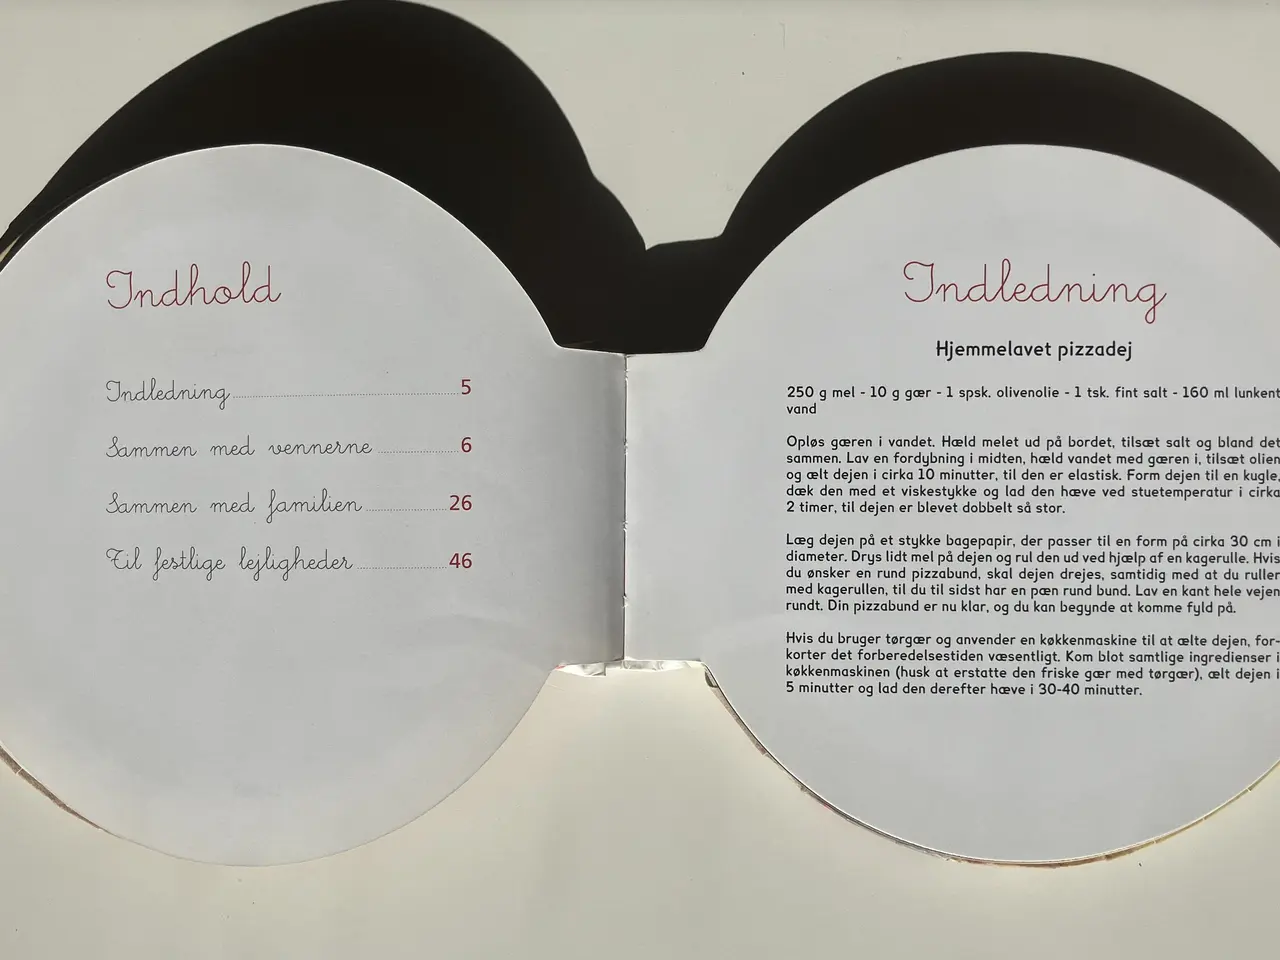 Indhold
Indledning 5
Sammen med vennerne 6
Sammen med familien 26
Til festlige lejligheder 46
Indledning
Hjemmelavet pizzadej
250 g mel - 10 g gær - 1 spsk. olivenolie - 1 tsk. fint salt - 160 ml lunkent
vand
Opløs gæren i vandet. Hæld melet ud på bordet, tilsæt salt og bland det
sammen. Lav en fordybning i midten, hæld vandet med gæren i, tilsæt olien
og ælt dejen i cirka 10 minutter, til den er elastisk. Form dejen til en kugle,
dæk den med et viskestykke og lad den hæve ved stuetemperatur i cirka
2 timer, til dejen er blevet dobbelt så stor.
Læg dejen på et stykke bagepapir, der passer til en form på cirka 30 cm i
diameter. Drys lidt mel på dejen og rul den ud ved hjælp af en kagerulle. Hvis
du ønsker en rund pizzabund, skal dejen drejes, samtidig med at du ruller
med kagerullen, til du til sidst har en pæn rund bund. Lav en kant hele vejen
rundt. Din pizzabund er nu klar, og du kan begynde at komme fyld på.
Hvis du bruger tørgær og anvender en køkkenmaskine til at ælte dejen, for-
korter det forberedelsestiden væsentligt. Kom blot samtlige ingredienser i
køkkenmaskinen (husk at erstatte den friske gær med tørgær), ælt dejen i
5 minutter og lad den derefter hæve i 30-40 minutter.